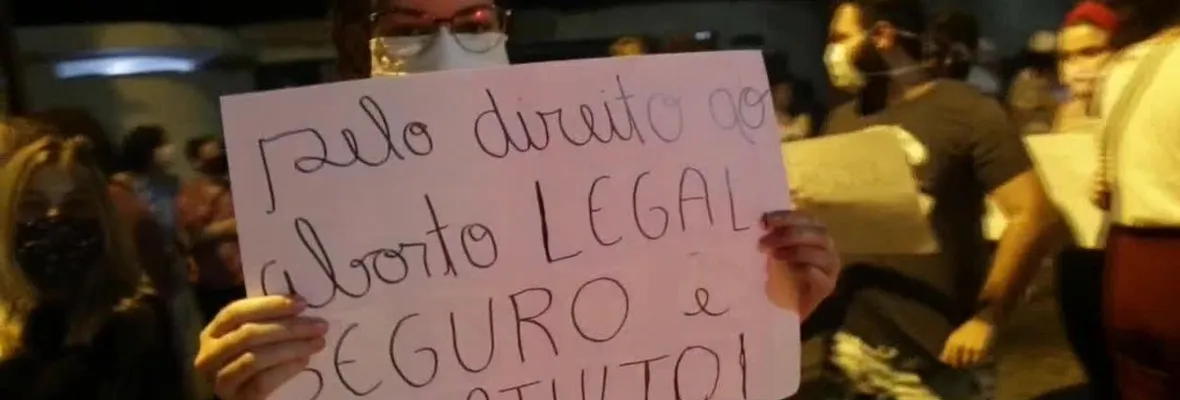 pelo direito ao
aborto LEGAL
SEGURO e
GRATUITO!